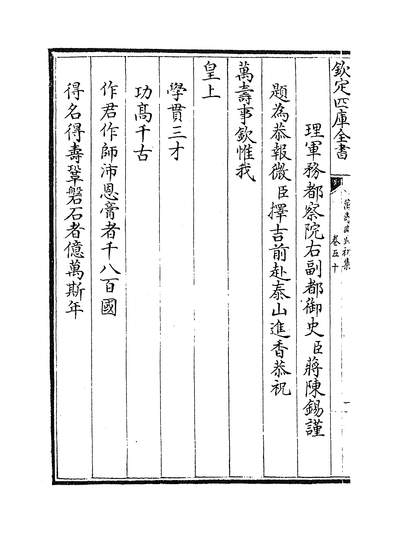 欽定四庫全書
卷五十
理軍務都察院右副都御史臣蔣陳錫謹
題為恭報微臣擇吉前赴泰山進香恭祝
萬壽事欽惟我
皇上
學貫三才
功髙千古
作君作師沛恩膏者千八百國
得名得壽鞏磐石者億萬斯年